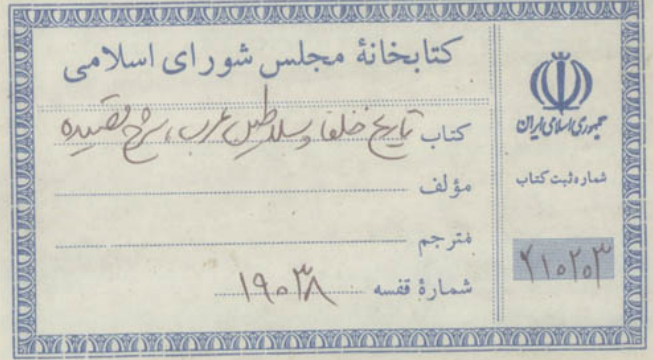 کتابخانهٔ مجلس شورای اسلامی
کتاب تاریخ خلفا و سلاطین عرب، شرح قصیده
مؤلف
مترجم
شمارهٔ قفسه ۱۹۰۳۸
جمهوری اسلامی ایران
شماره ثبت کتاب
۲۱۰۲۰۳